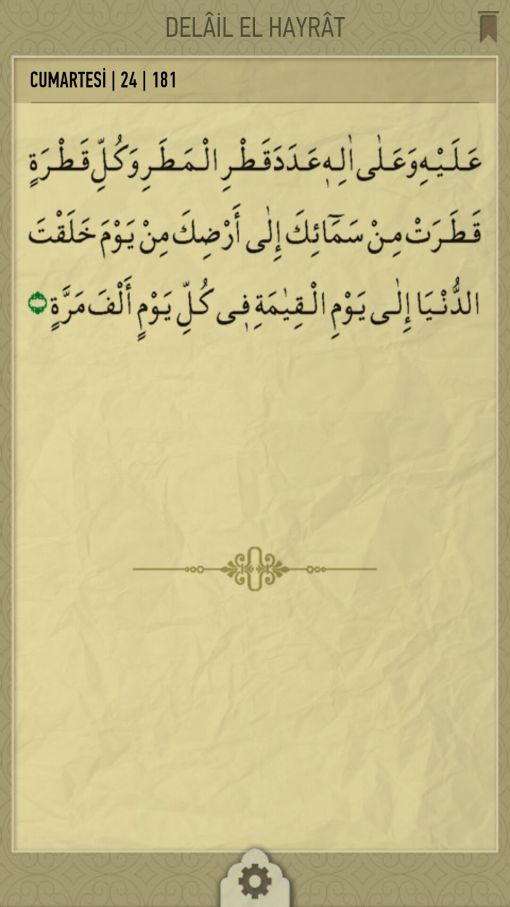 DELÂİL EL HAYRÂT
CUMARTESİ | 24 | 181
عَلَيْهِ وَعَلٰى اٰلِهٖ عَدَدَ قَطْرِ الْمَطَرِ وَكُلِّ قَطْرَةٍ
قَطَرَتْ مِنْ سَمَٓائِكَ إِلٰى أَرْضِكَ مِنْ يَوْمَ خَلَقْتَ
الدُّنْيَا إِلٰى يَوْمِ الْقِيٰمَةِ فٖى كُلِّ يَوْمٍ أَلْفَ مَرَّةٍ